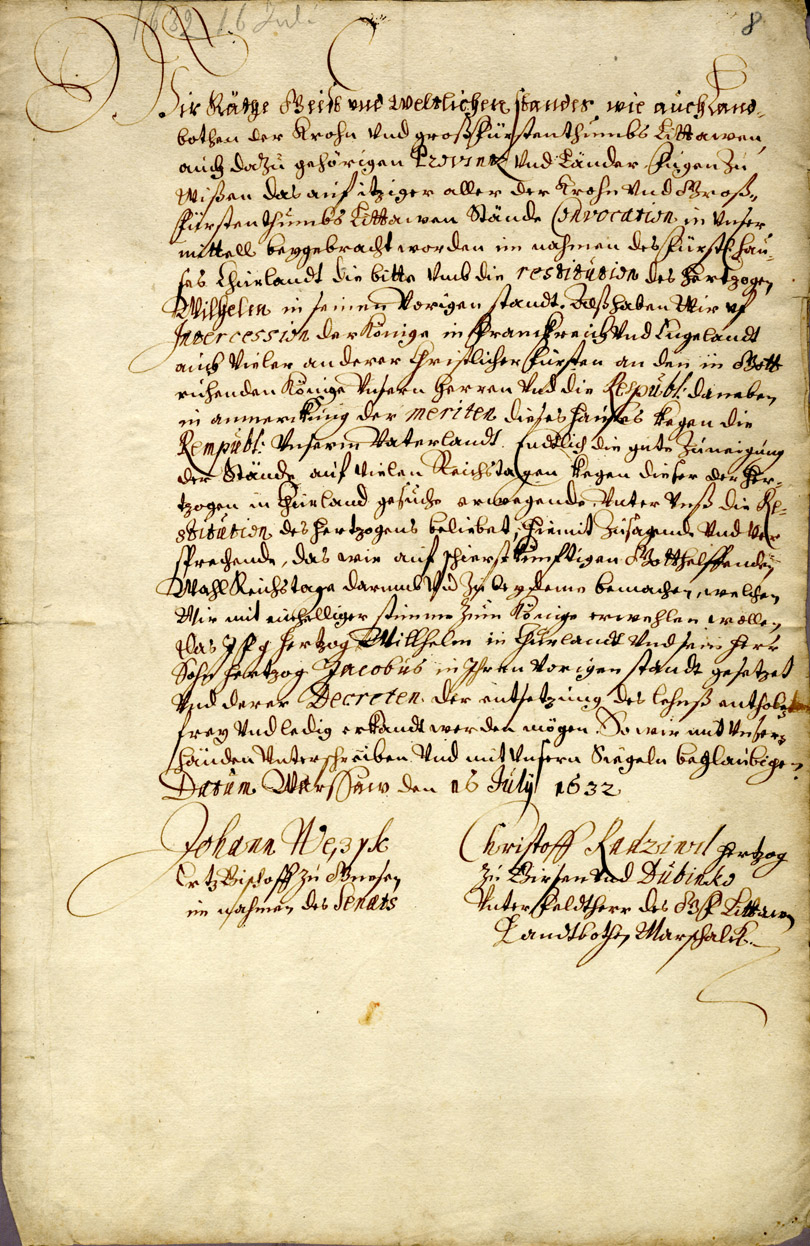 1632 16 Juli
8
Wir Räthe Geist und weltlichen standes wie auch Land-
bothen der Krohn und großfürstenthumbs Littawen,
auch dazu gehörigen Provintz und Länder fügen zu
wißen das auf itziger aller der Krohn und Groß-
fürstenthumbs Littawen Stände Convocation in unser
mittell beygebracht worden im nahmen des Fürstl: hau-
ses Churlandt die bitte umb die restitution des hertzogen
Wilhelm in seinen vorigen standt. haben Wir uf
Intercession der Könige in Franckreich und Engelandt
auch vieler anderer Christlicher fürsten an den in Gott
ruhenden Könige unsern herren und die Respubl: daneben
in anmerckung der meriten dieses hauses kegen die
Rempubl: unserm Vaterlandt. Endtlich die gute zuneigung
der Stände auf vielen Reichstagen kegen dieser der her-
tzogen in Churland gesuche erwegende, unter unß die Re-
stitution des hertzogens beliebet, hiemit zusagende und ver
sprechende, das wir auf schierst künfftigen Gotthelffenden
Wahl Reichstage darumb und zu bemachen, welchen
Wir mit einhelliger stimme zum Könige erwehlen wollen
das hertzog Willhelm in Churlandt und sein herr
Sohn hertzog Jacobus in Ihren vorigen standt gesetzet
und derer Decreten der entsetzung des lehnß enthoben
frey und ledig erkandt werden mögen. So wir mit unsern
händen unterschreiben und mit unsern Siegeln beglaubigen.
Datum Warssaw den 16 July 1632
Johann Wezyk
Ertz Bischoff zu Gnesen
im nahmen des Senats
Christoff Radziwil hertzog
zu Birsen und Dubincko
Unter Feldtherr des GF Littawen
Landtbothen Marschalck.